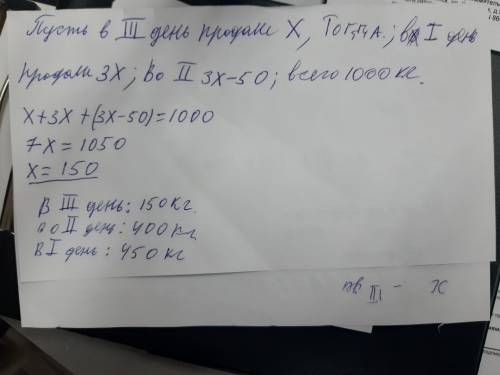 Пусть в III день продали X, тогда; в I день
продали 3X; во II 3X-50; всего 1000 кг.
X+3X+(3X-50)=1000
7X=1050
X=150
В III день: 150 кг.
во II день: 400 кг
в I день: 450 кг
III - X